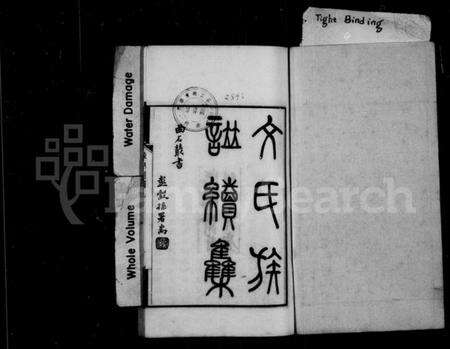 Tight Binding
Water Damage
Whole Volume
文氏族
譜續集
曲石叢書
FamilySearch